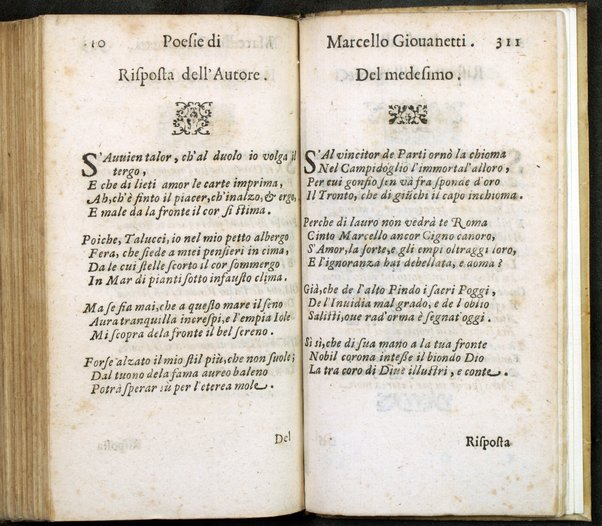 10 Poesie di
Risposta dell'Autore.
S'Auuien talor, ch'al duolo io volga il
tergo,
E che di lieti amor le carte imprima,
Ah, ch'è finto il piacer, ch'inalzo, & ergo,
E male da la fronte il cor si stima.
Poiche, Talucci, io nel mio petto albergo
Fera, che siede a miei pensieri in cima,
Da le cui stelle scorto il cor sommergo
In Mar di pianti sotto infausto clima.
Ma se fia mai, che a questo mare il seno
Aura tranquilla increspi, e l'empia Iole
Mi scopra de la fronte il bel sereno.
Forse alzato il mio stil più, che non suole;
Dal tuono de la fama aureo baleno
Potrà sperar sù per l'eterea mole.
Del
Marcello Giouanetti. 311
Del medesimo.
S'Al vincitor de Parti ornò la chioma
Nel Campidoglio l'immortal'alloro,
Per cui gonfio sen và fra sponde d'oro
Il Tronto, che di giuchi il capo inchioma.
Perche di lauro non vedrà te Roma
Cinto Marcello ancor Cigno canoro,
S'Amor, la sorte, e gli empi oltraggi loro,
E l'ignoranza hai debellata, e doma?
Già, che de l'alto Pindo i sacri Poggi,
De l'Inuidia mal grado, e de l'oblio
Salisti, oue rad'orma è segnat'oggi.
Sì sì, che di sua mano a la tua fronte
Nobil corona intesse il biondo Dio
La tra coro di Diue illustri, e conte.
Risposta